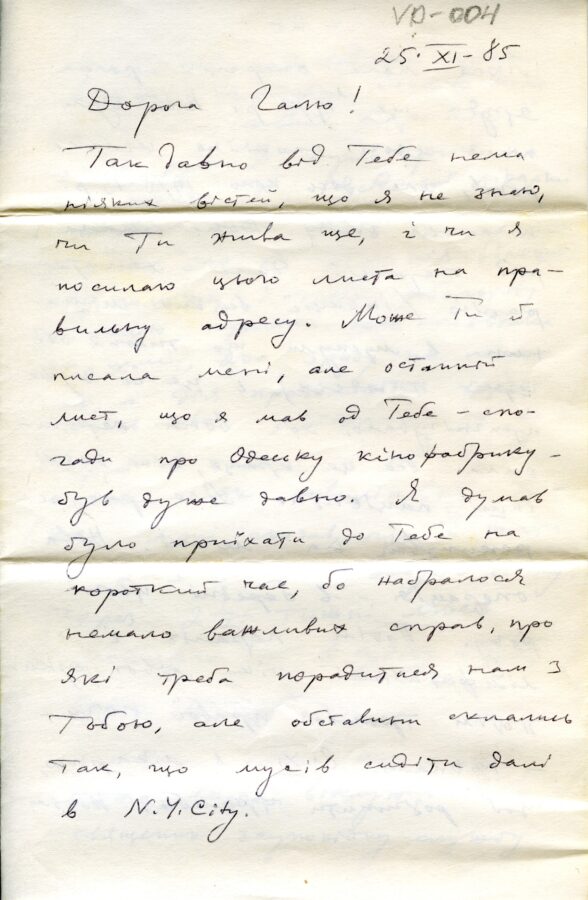 VD-004
25·XI-85
Дорога Галю!
Так давно від Тебе нема
ніяких вістей, що я не знаю,
чи Ти жива ще, і чи я
посилаю цього листа на пра-
вильну адресу. Може Ти й
писала мені, але останній
лист, що я мав од Тебе – спо-
гади про Одеську кінофабрику –
був дуже давно. Я думав
було приїхати до Тебе на
короткий час, бо набралося
немало важливих справ, про
які треба порадитися нам з
Тобою, але обставини склались
так, що мусів сидіти далі
в N.Y.City.